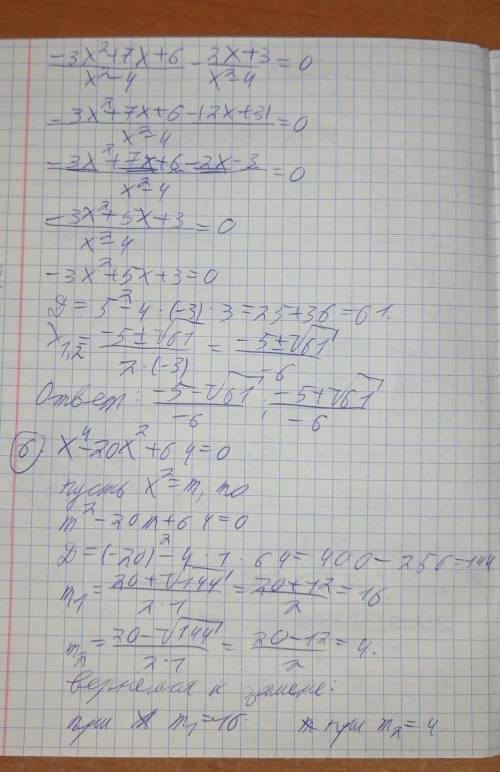 (-3x²+7x+6)/(x²-4) - (3x+3)/(x²-4) = 0
(-3x²+7x+6-(2x+3))/(x²-4) = 0
(-3x²+7x+6-2x-3)/(x²-4) = 0
(-3x²+5x+3)/(x²-4) = 0
-3x²+5x+3=0
D = 5²-4·(-3)·3=25+36=61.
x₁,₂ = (-5±√61)/(2·(-3)) = (-5±√61)/(-6)
Ответ: (-5-√61)/(-6) ; (-5+√61)/(-6)
б) x⁴-20x²+64=0
пусть x²=m, то
m²-20m+64=0
D=(-20)²-4·1·64=400-256=144
m₁=(20+√144)/(2·1)=(20+12)/2=16
m₂=(20-√144)/(2·1)=(20-12)/2=4.
вернемся к замене:
при m₁=16 при m₂=4